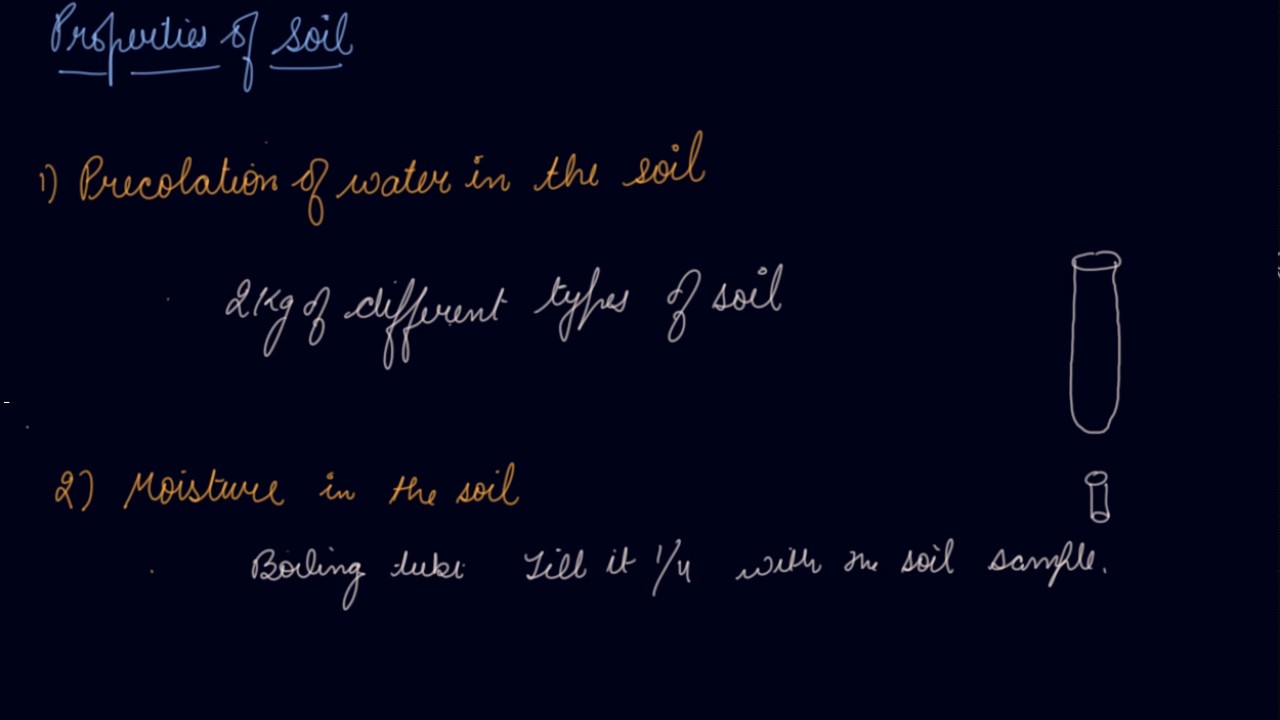 Properties of soil
1) Precolation of water in the soil
2kg of different types of soil
2) Moisture in the soil
Boiling tube Fill it 1/4 with the soil sample.